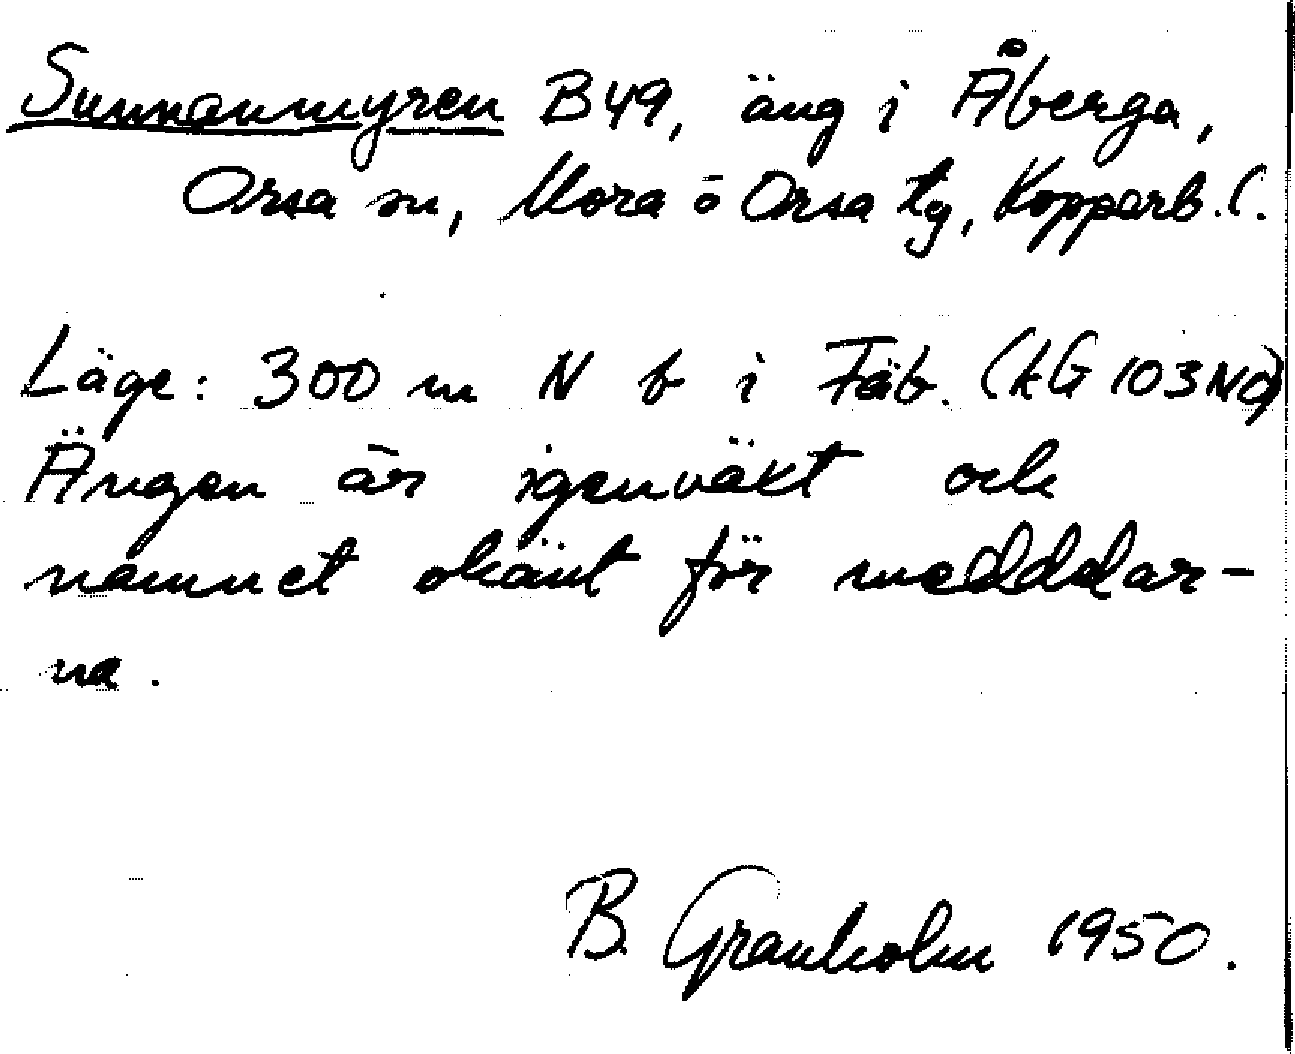 Sunnanmyren B49, äng i Åberga,
Orsa sn, Mora o Orsa tg, Kopparb. l.
Läge: 300 m N b i Fäb. (kG 103 NO)
Ängen är igenväxt och
namnet okänt för medddar-
na.
B. Granholm 1950.